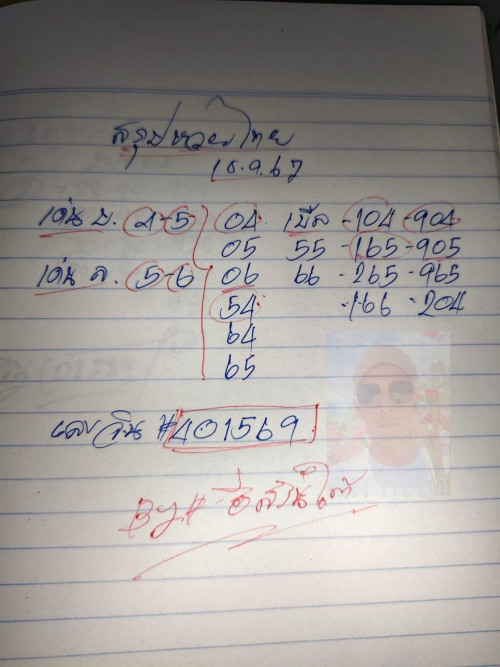 สรุปหวยไทย
16.9.67
เด่น บ. 4-5 04 เบิ้ล -104 -904
05 55 -165 -905
เด่น ล. 5-6 06 66 -265 -965
54 -166 -204
64
65
เลขวิน # 401569
By#